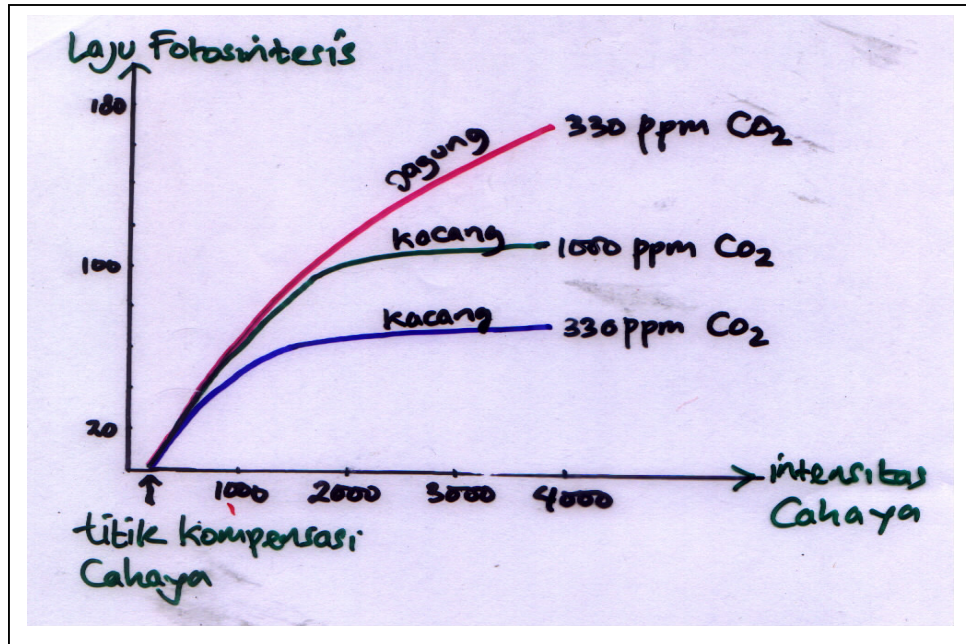 Laju Fotosintesis
180
Jagung
330 ppm CO2
kacang
1000 ppm CO2
100
kacang
330 ppm CO2
20
1000 2000 3000 4000
intensitas
Cahaya
titik kompensasi
Cahaya